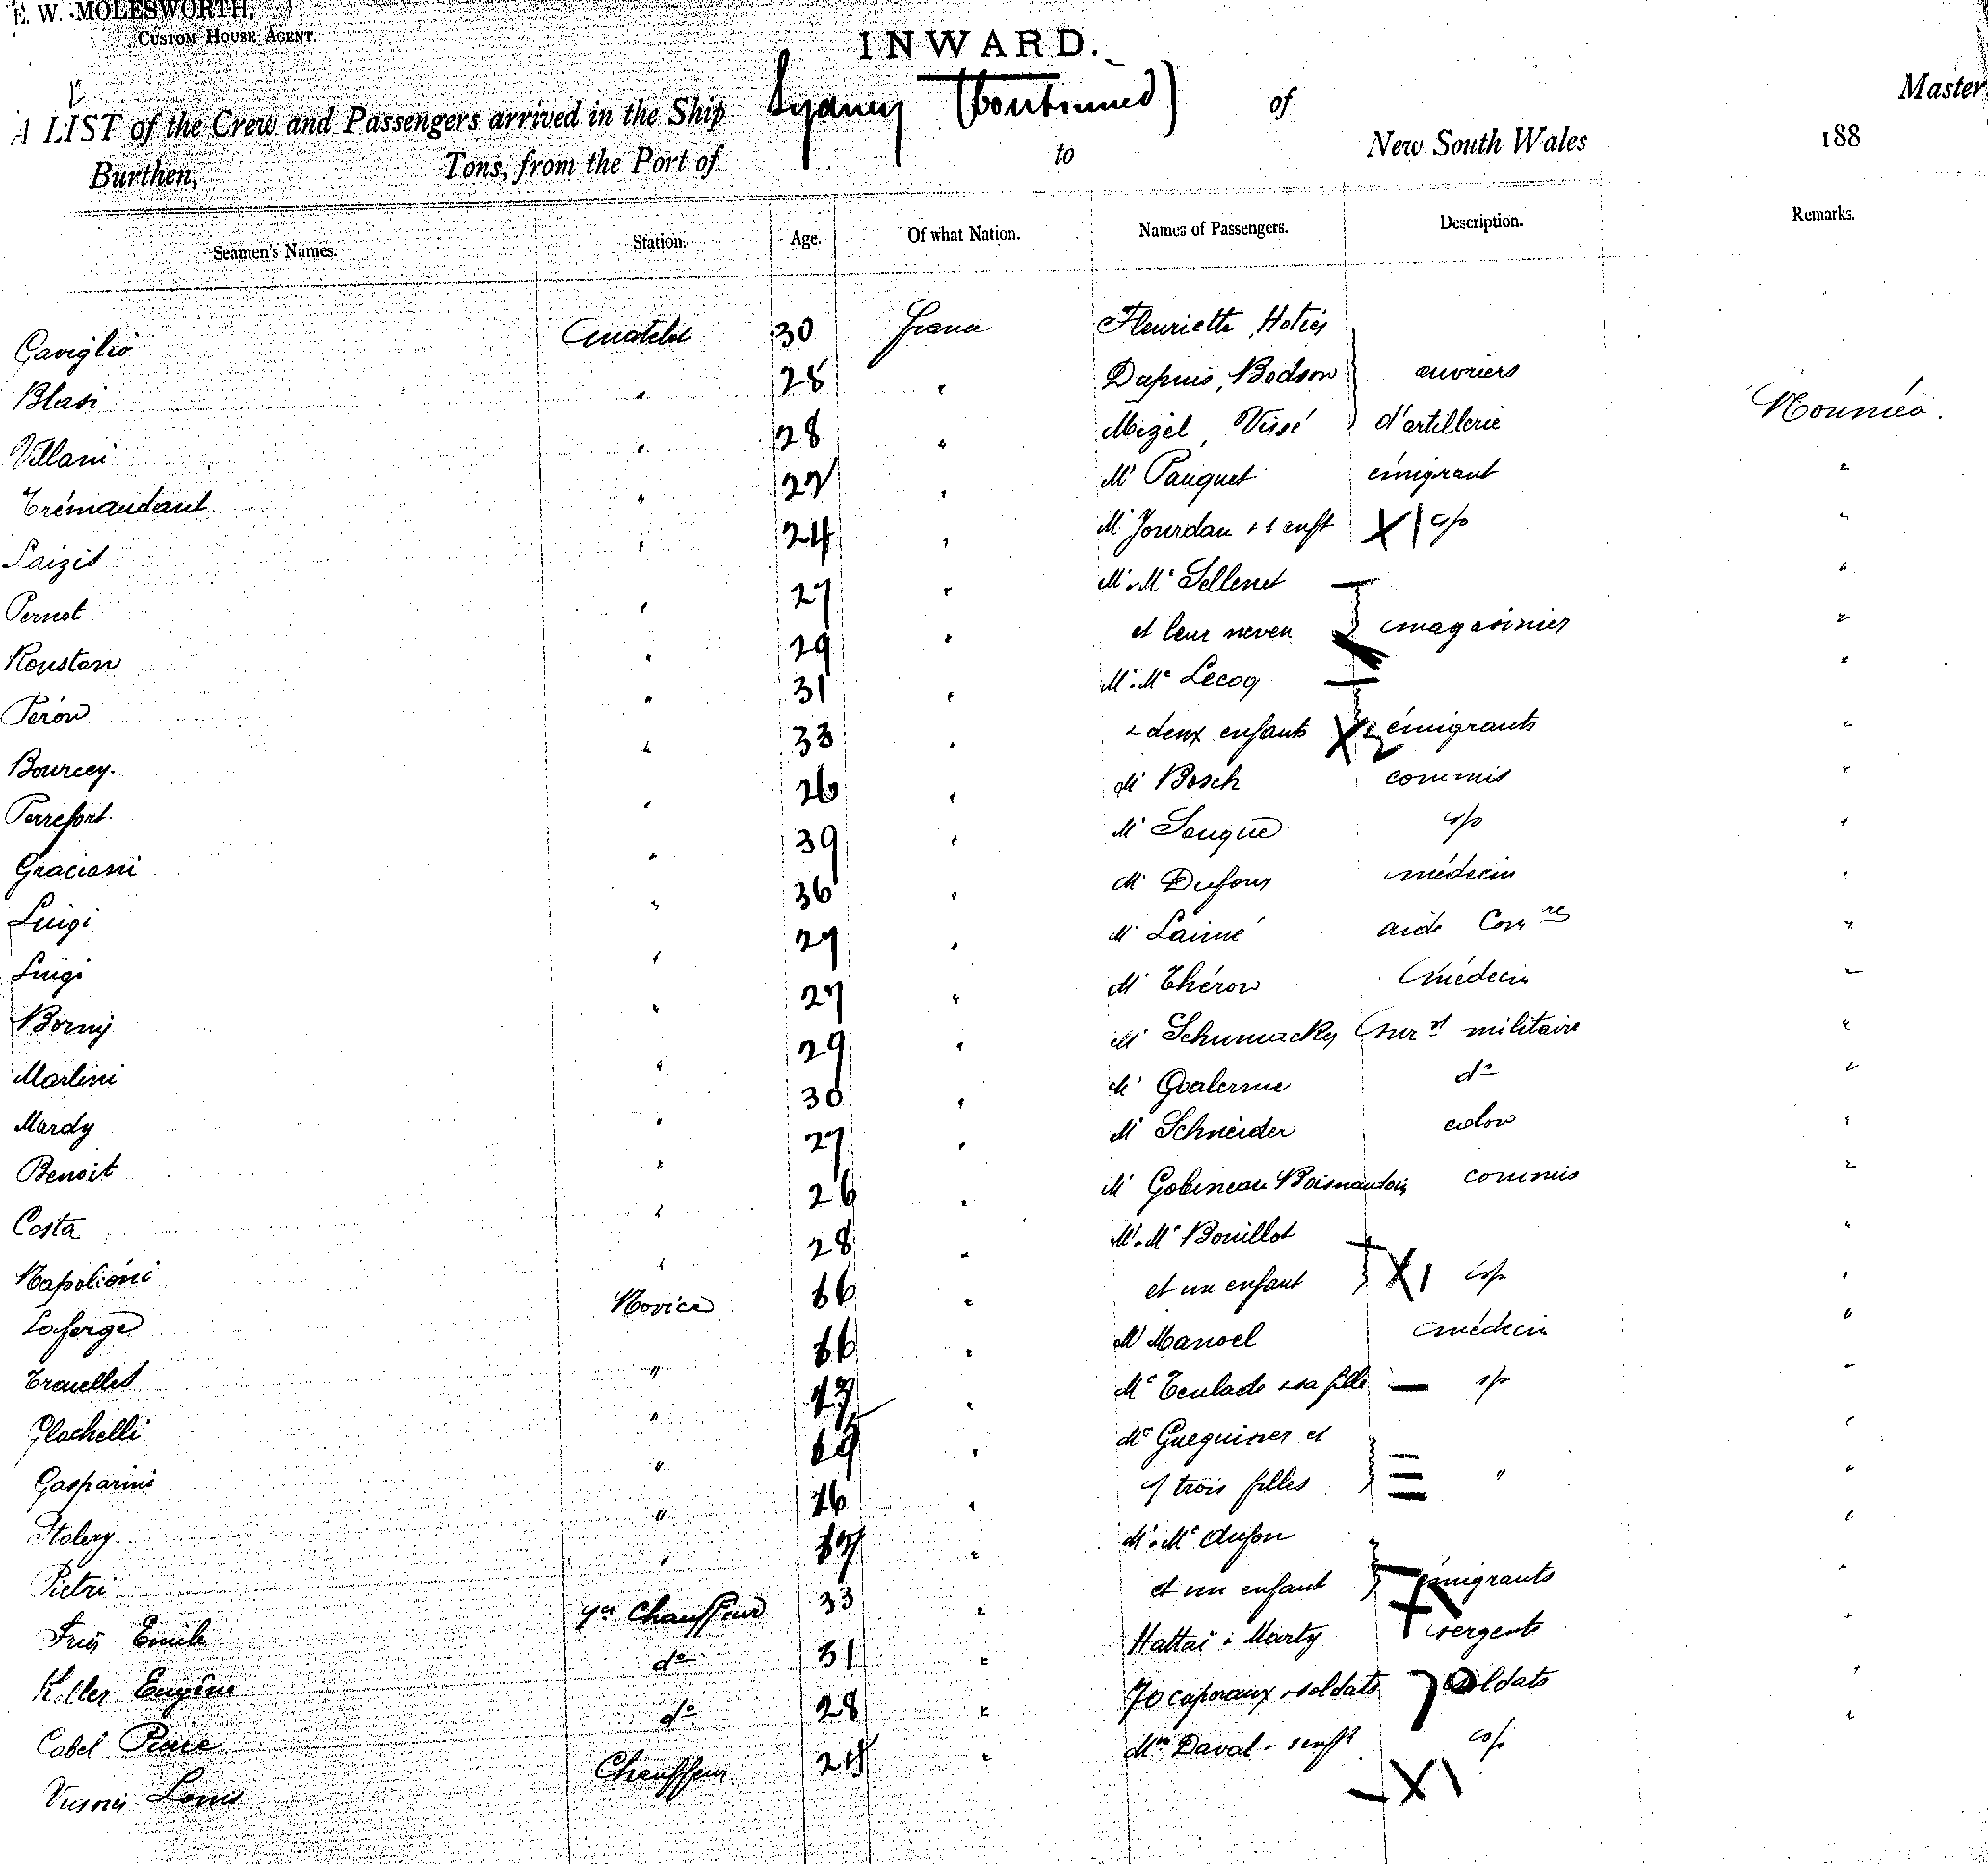 E. W. MOLESWORTH,
CUSTOM HOUSE AGENT.
INWARD.
A LIST of the Crew and Passengers arrived in the Ship Sydney (Continued) of Master
Burthen, Tons, from the Port of to New South Wales 188
Seamen's Names. Station. Age. Of what Nation. Names of Passengers. Description. Remarks.
Gaviglio matelot 30 France Fleuriette, Hotiés
Blasi " 28 " Dupuis, Bodson ouvriers
Villani " 28 " Mizel, Vissé d'artillerie Nouméa.
Trémaudant " 22 " Mr Pauquet émigrant "
Laizit " 24 " Mr Jourdan + 1 enft X1 s/p "
Pernot " 27 " Mr. Me Sellenet "
Roustan " 29 " et leur neveu magasinier "
Péron " 31 " Mr. Me Lecoq "
Bourcey. " 33 " & deux enfants X2 émigrants "
Perrefort " 26 " Mr Bosch commis "
Graciani " 39 " Mr Senque s/p "
Luigi " 36 " Mr Dufour médecin "
Luigi " 29 " Mr Lainé aide Comre "
Borny " 27 " Mr Théron médecin "
Martini " 29 " Mr Schumacker survt militaire "
Mardy " 30 " Mr Goalerme do "
Benoit " 27 " Mr Schneider colon "
Costa " 26 " Mr Gobineau Boismaudois commis "
Napolioni " 28 " Mr. Me Bouillot "
Laforge Novice 16 " et un enfant X1 s/p "
Trouellet " 16 " Mr Manoel médecin "
Glachelli " 17 " Me Teulade & sa fille s/p "
Gasparini " 19 " Me Gueguiner et "
Stolery " 16 " trois filles " "
Pietri " 17 " Mr. Me dufou "
Emile Chauffeur 33 " et un enfant émigrants "
Keller Eugène do 31 " Hattai & Marty sergents "
Cabel Pierre do 28 " 70 caporaux & soldats 70 soldats "
Louis Chauffeur 24 " Daval s/p "
X1